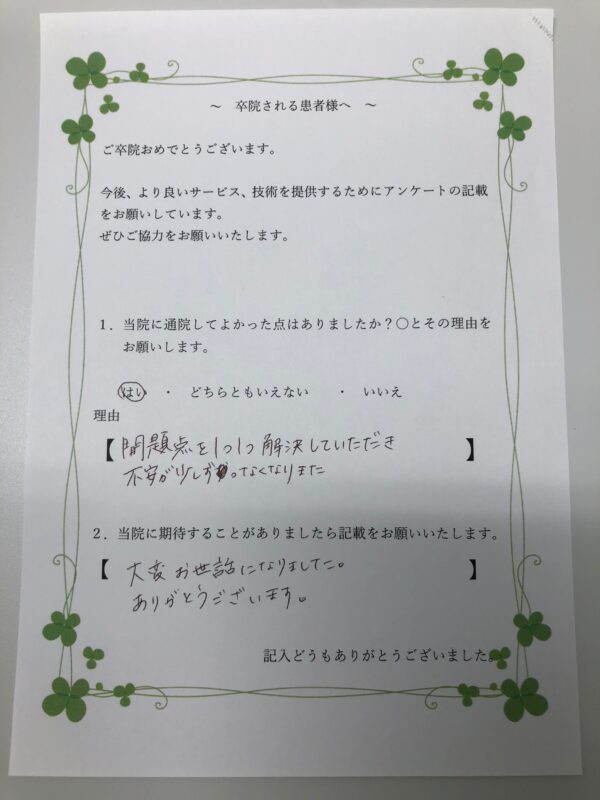 ～　卒院される患者様へ　～
ご卒院おめでとうございます。
今後、より良いサービス、技術を提供するためにアンケートの記載
をお願いしています。
ぜひご協力をお願いいたします。
１．当院に通院してよかった点はありましたか？〇とその理由を
お願いします。
はい　・　どちらともいえない　・　いいえ
理由
【問題点を1つ1つ解決していただき】
不安が少しずつなくなりました
２．当院に期待することがありましたら記載をお願いいたします。
【大変お世話になりました。】
ありがとうございます。
記入どうもありがとうございました。